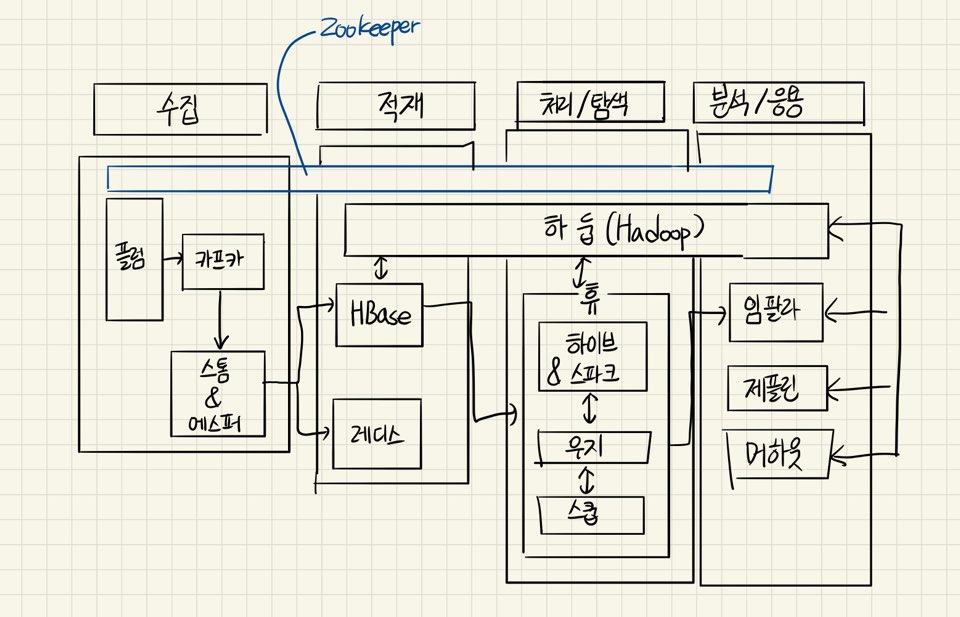 Zookeeper
수집
적재
처리/탐색
분석/응용
하 둡 (Hadoop)
플럼
카프카
스톰
&
에스퍼
HBase
레디스
휴
하이브
& 스파크
우지
스쿱
임팔라
제플린
머하웃